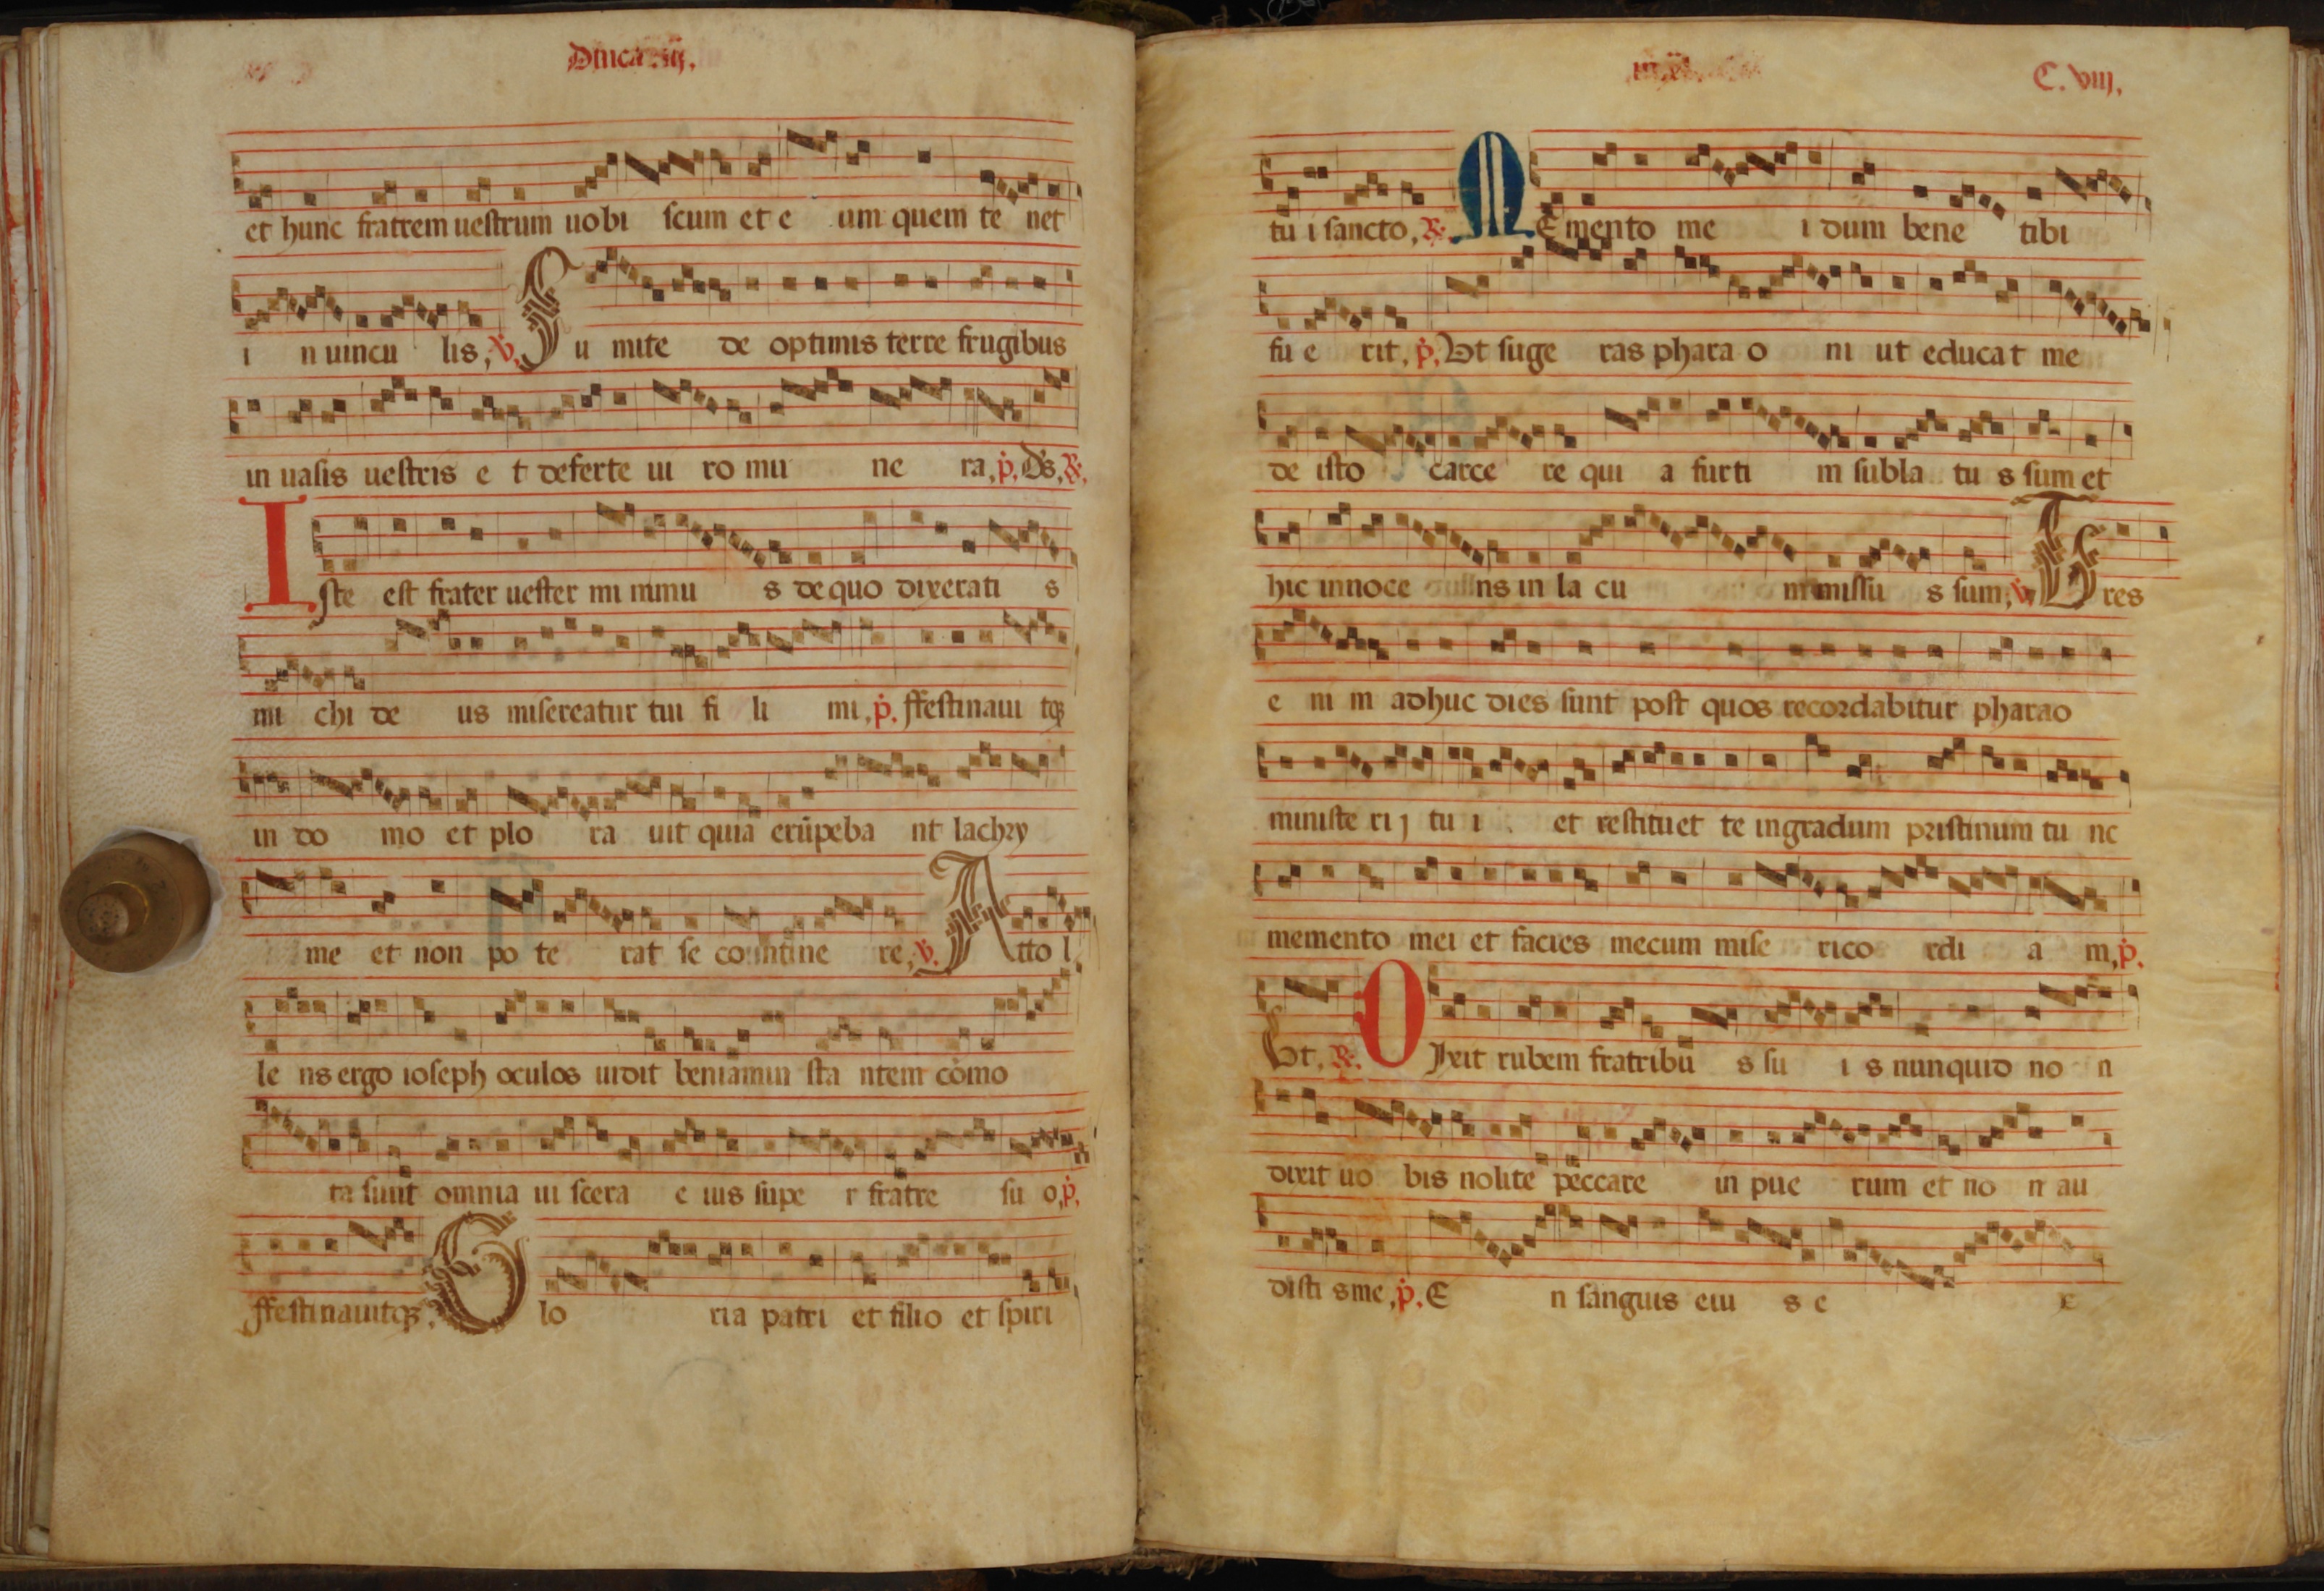 Dnica .iij.
et hunc fratrem uestrum uobi scum et e um quem te net
i n uincu lis, ℣. Su mite de optimis terre frugibus
in uasis uestris e t deferte ui ro mu ne ra, p. Ds, ℟.
Iste est frater uester mi nimu s de quo dixerati s
mi chi de us misereatur tui fi li mi, p. ffestinaui tqꝫ
in do mo et plo ra uit quia erūpeba nt lachry
me et non po te rat se contine re, ℣. Atto l
le ns ergo ioseph oculos uidit beniamin sta ntem cōmo
ta sunt omnia ui scera e ius supe r fratre su o, p.
ffestinauitqꝫ. Glo ria patri et filio et spiri
C. viij,
tu i sancto, ℟. MEmento me i dum bene tibi
fu e rit, p. Vt suge ras phara o ni ut educat me
de isto carce re qui a furti m subla tu s sum et
hic innoce ns in la cu m missu s sum, ℣. Tres
e ni m adhuc dies sunt post quos recordabitur pharao
ministe ri j tu i et restituet te ingradum pristinum tu nc
memento mei et facies mecum mise rico rdi a m, p.
Vt, ℟. DIxit rubem fratribu s su i s nunquid no n
dixit uo bis nolite peccare in pue rum et no n au
disti s me, p. E n sanguis eiu s e x